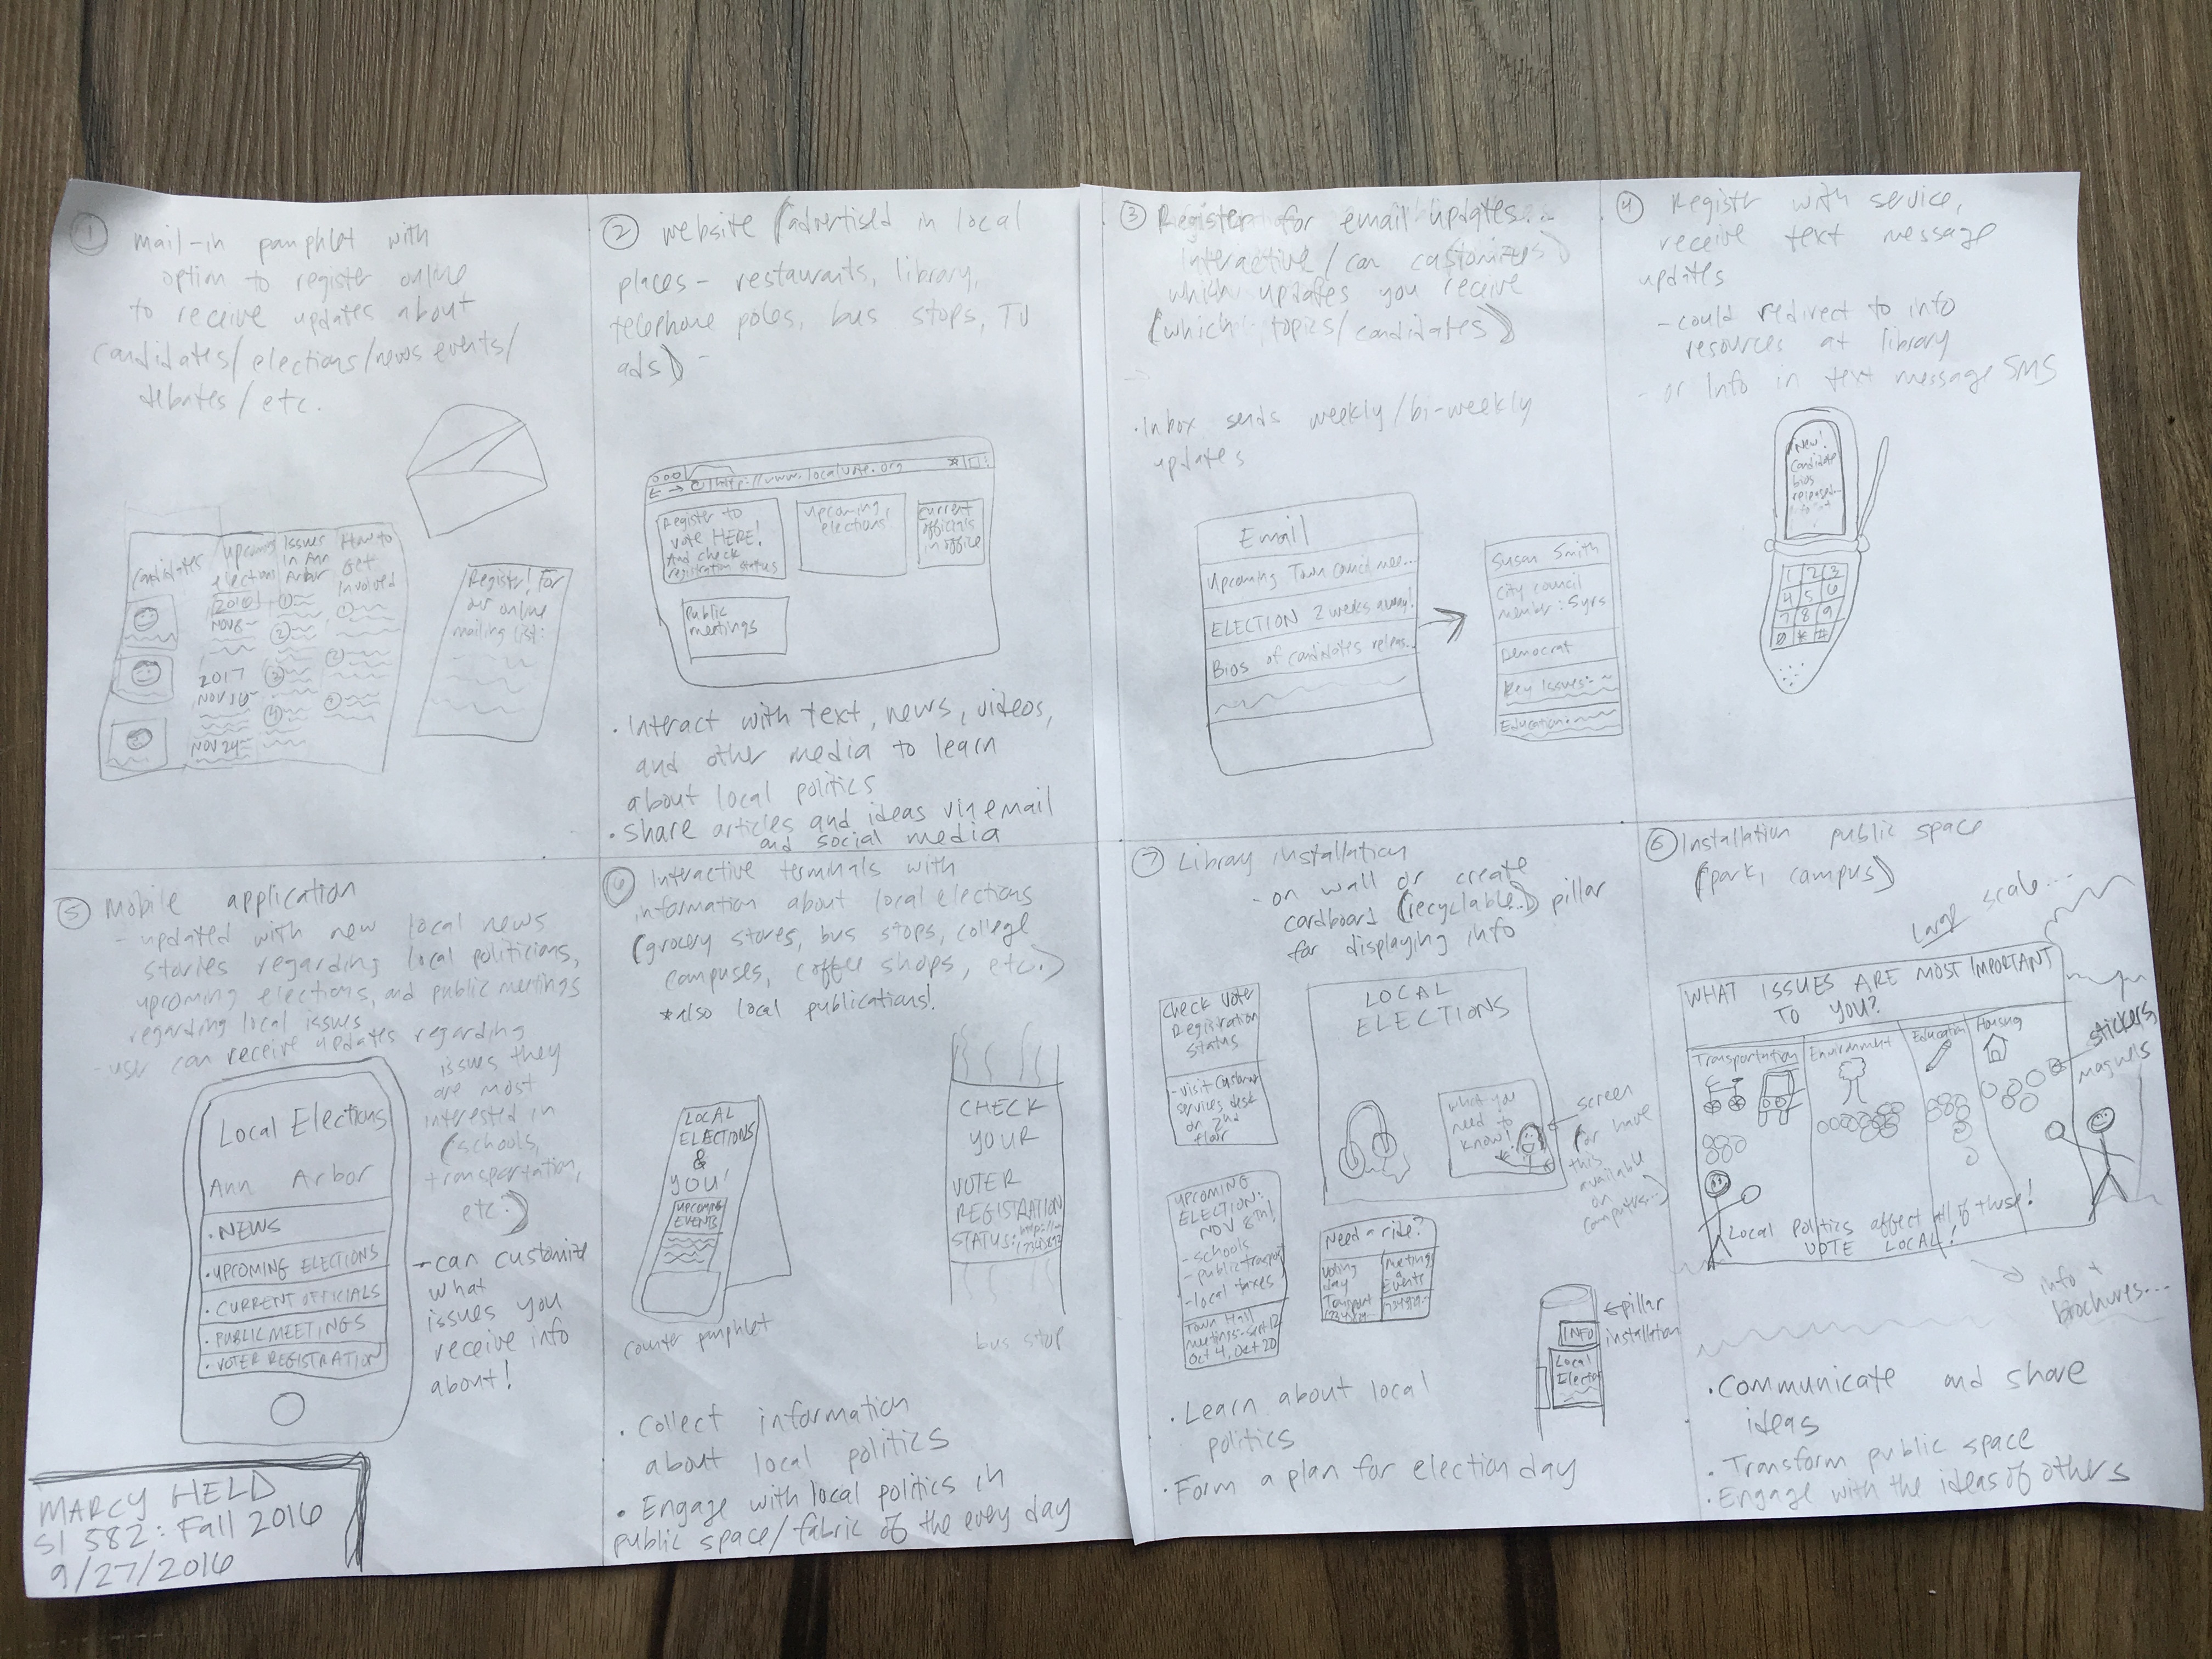 ① Mail-in pamphlet with
option to register online
to receive updates about
candidates/elections/news events/
debates/etc.
Candidates
Upcoming
elections
2016
NOV 8
2017
NOV 10
NOV 24
Issues
In Ann
Arbor
①
②
③
④
How to
Get
Involved
①
②
Register! For
our online
mailing list:
② website (advertised in local
places - restaurants, library,
telephone poles, bus stops, TV
ads)
http://www.localvote.org
Register to
vote HERE!
And check
registration status
Upcoming
elections
current
officials
in office
Public
meetings
• Interact with text, news, videos,
and other media to learn
about local politics
• Share articles and ideas via email
and social media
③ Register for email updates...
Interactive/can customize
which updates you receive
(which topics/candidates)
• Inbox sends weekly/bi-weekly
updates
Email
Upcoming Town Council mee...
ELECTION 2 weeks away!
Bios of candidates releas..
Susan Smith
City council
member: 5yrs
Democrat
Key Issues:
Education:
④ Register with service,
receive text message
updates
- could redirect to info
resources at library
- or Info in text message SMS
New!
Candidate
bios
released...
1 2 3
4 5 6
7 8 9
0 * #
⑤ Mobile application
- updated with new local news
stories regarding local politicians,
upcoming elections, and public meetings
regarding local issues
- user can receive updates regarding
issues they
are most
interested in
(schools,
transportation,
etc.)
- can customize
what
issues you
receive info
about!
Local Elections
Ann Arbor
• NEWS
• UPCOMING ELECTIONS
• CURRENT OFFICIALS
• PUBLIC MEETINGS
• VOTER REGISTRATION
MARCY HELD
SI 582: Fall 2016
9/27/2016
⑥ Interactive terminals with
information about local elections
(grocery stores, bus stops, college
campuses, coffee shops, etc.)
*also local publications!
LOCAL
ELECTIONS
&
YOU!
UPCOMING
EVENTS
counter pamphlet
CHECK
YOUR
VOTER
REGISTRATION
STATUS:
bus stop
• Collect information
about local politics
• Engage with local politics in
public space/fabric of the every day
⑦ Library installation
- on wall or create
cardboard (recyclable..) pillar
for displaying info
Check Voter
Registration
Status
- Visit Customer
services desk
on 2nd
floor
LOCAL
ELECTIONS
What you
need to
know!
screen
(or have
this
available
on
computers...)
UPCOMING
ELECTION:
NOV 8TH!
- schools
- public transport
- local taxes
Town Hall
meetings - Sept 12
Oct 4, Oct 20
Need a ride?
Voting
day
Transport
Meetings
&
Events
INFO
Local
Electio
pillar
installation
• Learn about local
politics
• Form a plan for election day
⑧ Installation public space
(park, campus)
Large scale...
WHAT ISSUES ARE MOST IMPORTANT
TO YOU?
Transportation
Environment
Education
Housing
stickers,
magnets
Local Politics affect all of these!
VOTE LOCAL!
info +
brochures...
• Communicate and share
ideas
• Transform public space
• Engage with the ideas of others